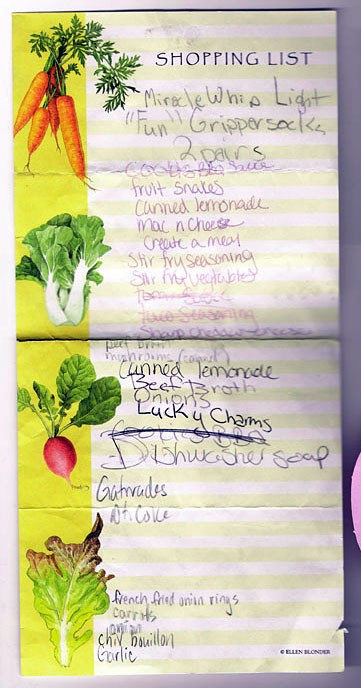 SHOPPING LIST
Miracle Whip Light
"Fun" Gripper socks
2 pairs
Cookies BBQ Sauce
fruit snakes
Canned lemonade
Mac n Cheese
Create a meal
Stir fry seasoning
Stir fry vegetables
Taco Seasoning
Sharp Cheddar Cheese
beef broth
mushrooms (canned)
Canned lemonade
Beef Broth
Onions
Lucky Charms
Cookies BBQ
Dishwasher soap
Gatorades
Dt. Coke
french fried onion rings
carrots
onion
chix bouillon
Garlic
© ELLEN BLONDER